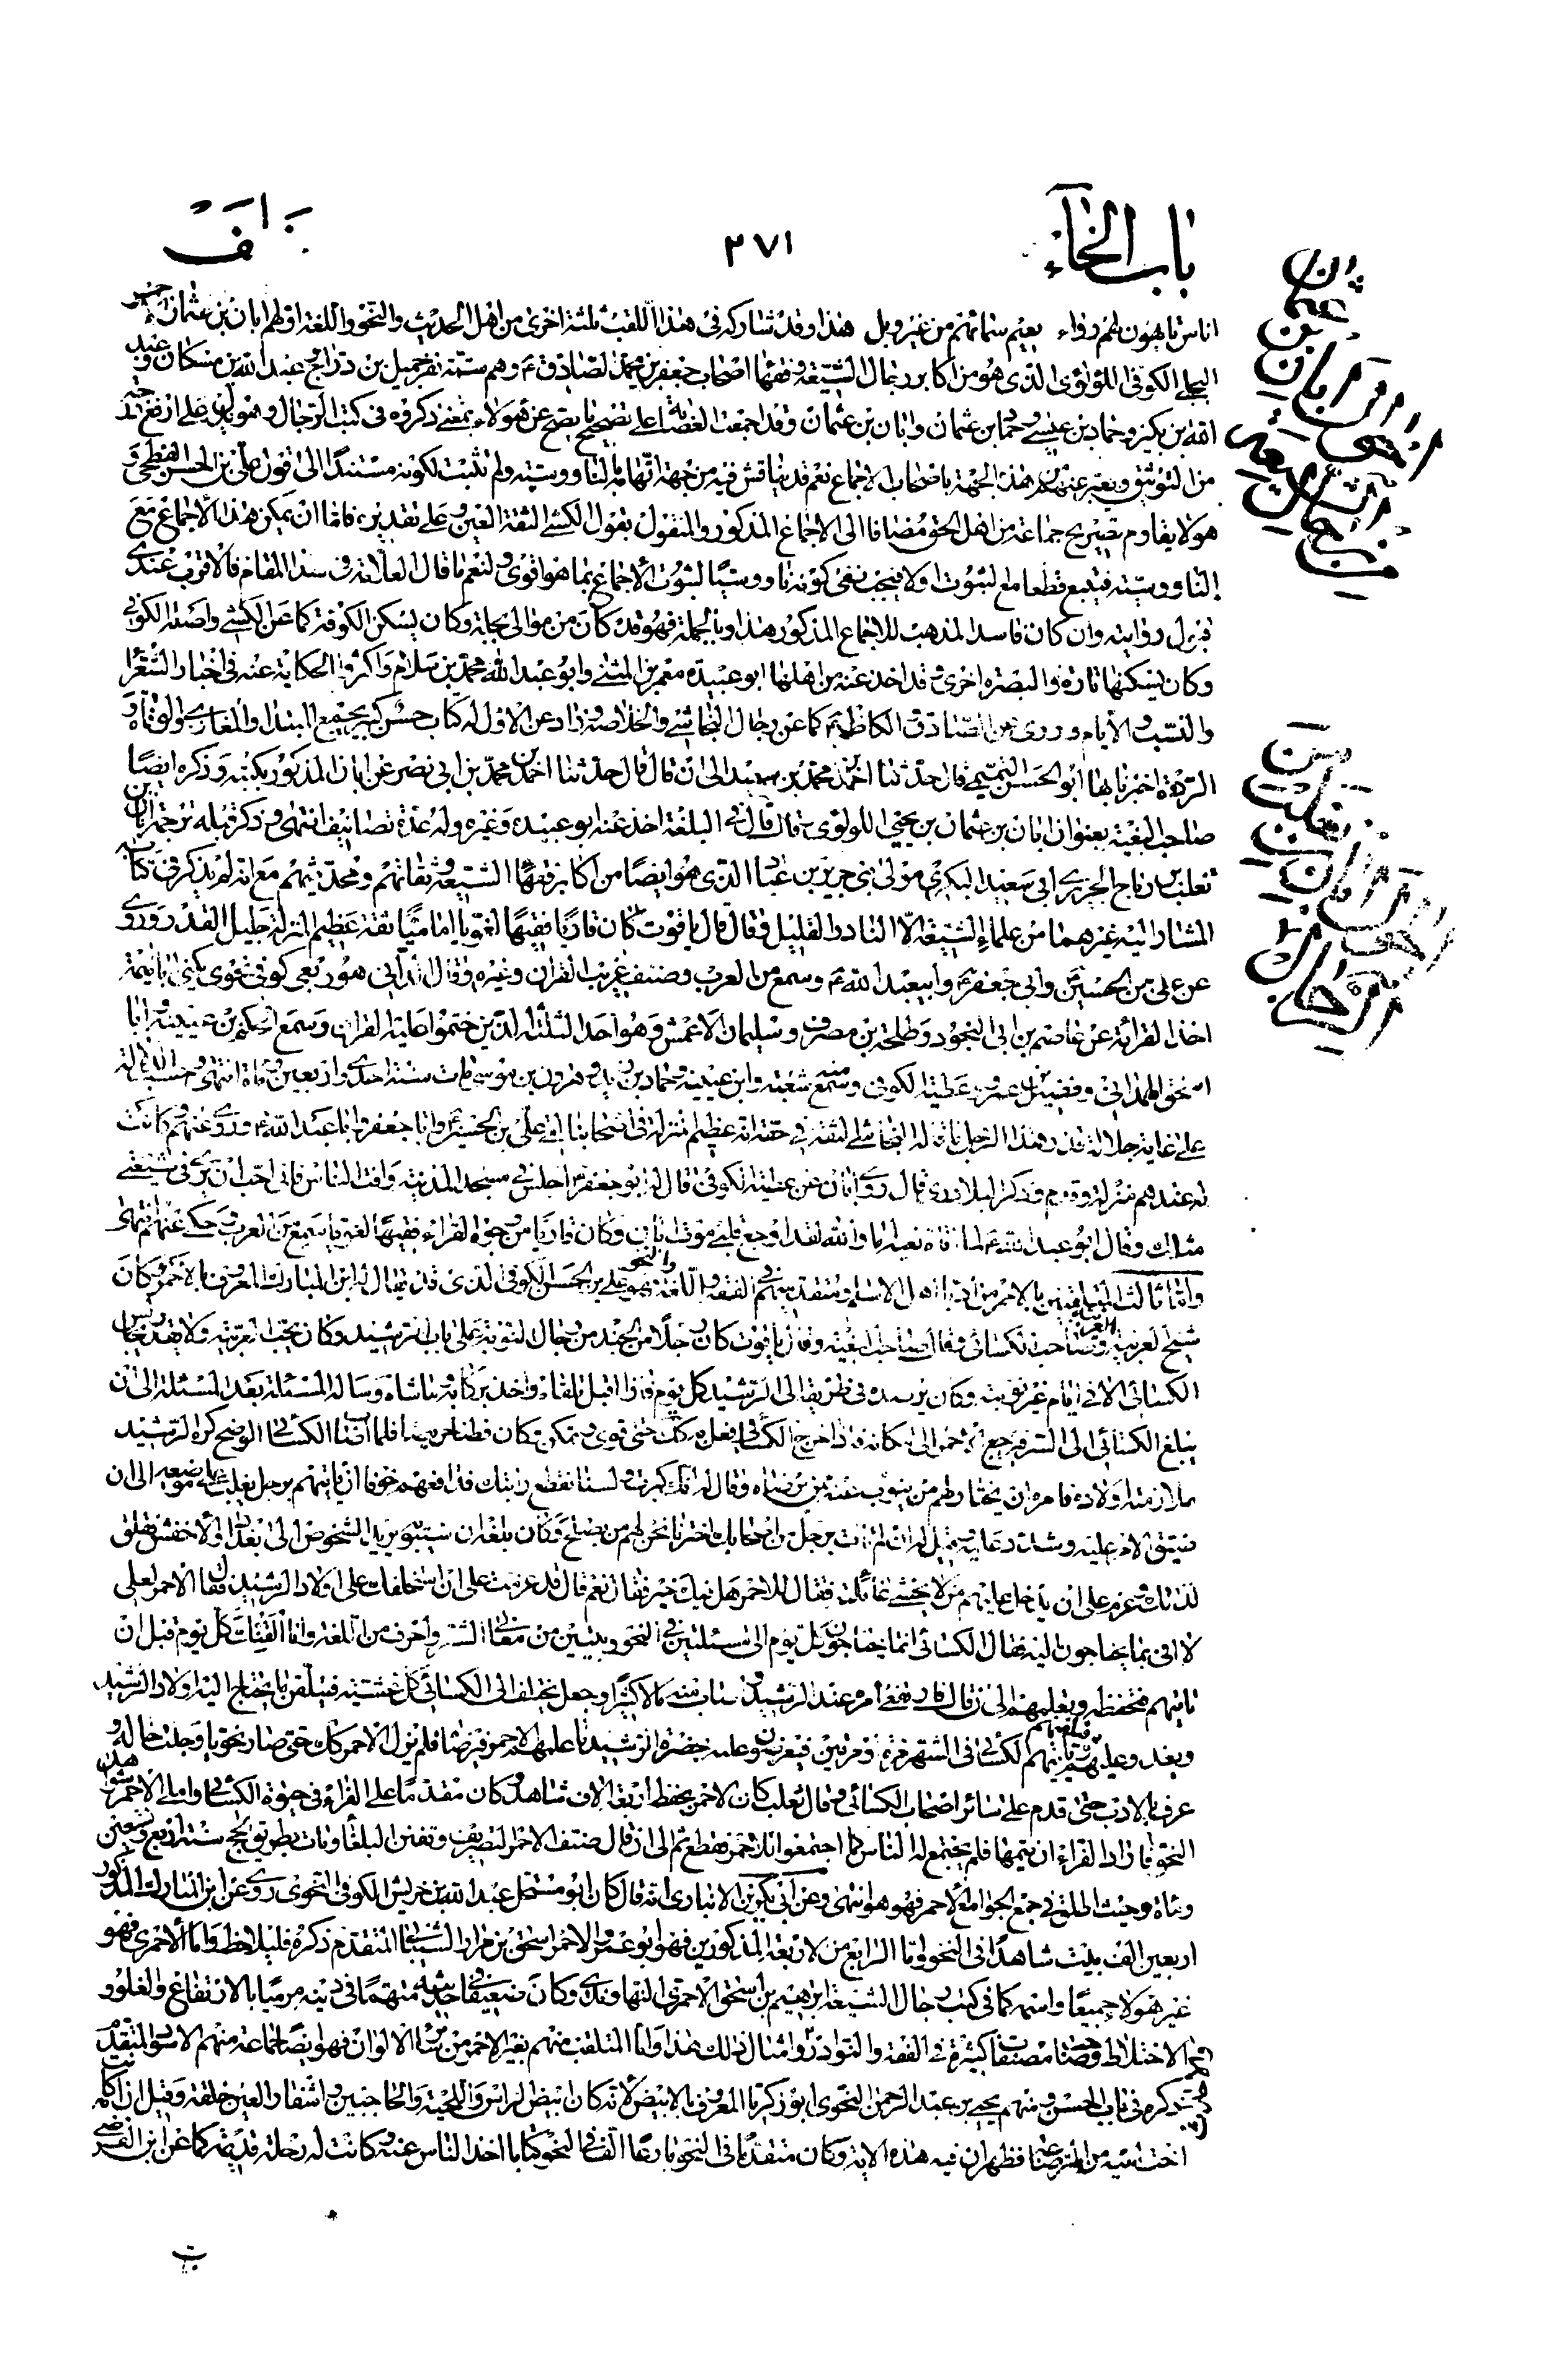 باب الخاء
٢٧١
اناس تاهبون لهم رواء بغيم سمائهم من غير وبل هذا وقد شاركه فى هذا اللقب ثلثة اخرى من اهل الحديث والنحو واللغة اولهم ابان بن عثمان الاحمر
البجلى الكوفى اللؤلؤى الذى هو من اكابر رجال الشيعة وفقهاء اصحاب جعفر بن محمد الصادق ع وهم ستة نفر جميل بن دراج وعبد الله بن مسكان وعبد
الله بن بكير وحماد بن عيسى وحماد بن عثمان وابان بن عثمان وقد اجمعت العصابة على تصحيح ما يصح عن هؤلاء بمعنى ذكروه فى كتب الرجال وهو يدل على ارفع درجة
من التوثيق ويعبر عنهم من هذه الجهة باصحاب الاجماع نعم قد يناقش فيه من جهة اتهامه بالناووسية ولم تثبت لكونه مستندا الى قول على بن الحسن الفطحى و
هو لا يقاوم تصريح جماعة من اهل الحق مضافا الى الاجماع المذكور والمنقول بقول الكشى الثقة العين وعلى تقديره فاما ان يمكن هذا الاجماع مع
الناووسية فيتبع قطعا مع الثبوت اولا فيجب نفى كونه ناووسيا لثبوت الاجماع بما هو اقوى ولنعم ما قال العلامة فى سند المقام فالاقرب عندى
قبول روايته وان كان فاسد المذهب للاجماع المذكور هذا وبالجملة فهو قد كان من موالى بجيلة وكان يسكن الكوفة كما عن الكشى واصله الكوفى
وكان يسكنها تارة والبصرة اخرى وقد اخذ عنه من اهلها ابو عبيدة معمر بن المثنى وابو عبد الله محمد بن سلام واكثروا الحكاية عنه فى اخبار الشعراء
والنسب والايام وروى عن الصادق والكاظم ع كما عن رجال النجاشى والخلاصة وزاد عن الاول له كتاب حسن كبير يجمع المبتدأ والمغازى والوفاة و
الردة اخبرنا بها ابو الحسن التميمى قال حدثنا احمد بن محمد بن سعيد الى ان قال قال حدثنا احمد بن محمد بن ابى نصر عن ابان المذكور بكتبه وذكره ايضا
صاحب البغية بعنوان ابان بن عثمان بن يحيى اللؤلؤى قال قال فى البلغة اخذ عنه ابو عبيدة وغيره وله عدة تصانيف انتهى وذكر قبله ترجمة ابان بن
تغلب بن رباح الجريرى ابى سعيد البكرى مولى بنى جرير بن عباد الذى هو ايضا من اكابر فقهاء الشيعة وثقاتهم ومحدثيهم مع انه لم يذكر فى كتابه
المشار اليه غيرهما من علماء الشيعة الا النادر القليل فقال قال ياقوت كان قاريا فقيها لغويا اماميا ثقة عظيم المنزلة جليل القدر روى
عن على بن الحسين ع وابى جعفر ع وابى عبد الله ع وسمع من العرب وصنف غريب القرآن وغيره وقال الدانى هو ربعى كوفى نحوى يكنى ابا اميمة
اخذ القرائة عن عاصم بن ابى النجود وطلحة بن مصرف وسليمان الاعمش وهو احد الثلثة الذين ختموا عليه القرآن وسمع الحكم بن عيينة وابا
اسحق الهمدانى وفضيل بن عمرو وعطية الكوفى وسمع منه شعبة وابن عيينة وحماد بن زيد وهرون بن موسى مات سنة احدى واربعين ومأة انتهى وحسب الدلالة
على غاية جلالة قدر هذا الرجل ما قاله النجاشى الثقة فى حقه انه عظيم منزلة فى اصحابنا لقى على بن الحسين ع وابا جعفر وابا عبد الله ع وروى عنهم وكانت
له عندهم منزلة وقدم وذكر البلاذرى قال روى ابان عن عطية الكوفى قال له ابو جعفر ع اجلس فى مسجد المدينة وافت الناس فانى احب ان يرى فى شيعتى
مثلك وقال ابو عبد الله ع لما اتاه نعيه اما والله لقد اوجع قلبى موت ابان وكان قاريا من وجوه القراء فقيها لغويا سمع من العرب وحكى عنهم انتهى
واما ثالث الملقبين بالاحمر من ائمة اهل الاسلام ومتقدميهم فى الفقه واللغة والنحو فهو على بن الحسن الكوفى الذى قد يقال له ابن المبارك المعروف بالاحمر كان
شيخ العربية وصاحب الكسائى فقال صاحب البغية وقال ياقوت كان رجلا من الجند من رجال النوبة على باب الرشيد وكان يحب العربية ولا يقدر يجالس
الكسائى الا فى ايام غير نوبته وكان يرصده فى طريقه الى الرشيد كل يوم فاذا اقبل تلقاه واخذ بركابه وماشاه وساله المسئلة بعد المسئلة الى ان
يبلغ الكسائى الى الستر فيرجع الاحمر الى مكانه فاذا خرج الكسائى فعل به كذلك حتى قوى وتمكن وكان فطنا حريصا فلما اصاب الكسائى الوضح كره الرشيد
ملازمته اولاده فامره ان يختار لهم من ينوب عنه ممن يرضاه وقال له انك كبرت ولسنا نقطع راتبك فدافعهم خوفا ان ياتيهم برجل يغلب على موضعه الى ان
ضيق الامر عليه وشدد دعائه فقيل له ان لم تات برجل من اصحابك اخترنا نحن لهم من يصلح وكان بلغه ان سيبويه يريد الشخوص الى بغداد والاخفش فقلق
لذلك وعزم على ان يدخل عليهم من لا يخشى غائلته فقال للاحمر هل فيك خير فقال نعم قال قد عزمت على ان استخلفك على اولاد الرشيد فقال الاحمر لعلى
لا افى بما يحتاجون اليه فقال الكسائى انما يحتاجون كل يوم الى مسئلتين فى النحو وبيتين من معانى الشعر واحرف من اللغة وانا القيك كل يوم قبل ان
تاتيهم فتحفظه وتعلمهم الى ان قال فارتفع امره عند الرشيد واستاب منه مالا كثيرا وجعل يختلف الى الكسائى كل عشية فيتلقن ما يحتاج اليه اولاد الرشيد
ويغدو عليهم فيلقنهم وياتيهم الكسائى فى الشهر مرة او مرتين فيعرضون عليه بحضرة الرشيد ما علمهم الاحمر فيرضاه فلم يزل الاحمر كذلك حتى صار نحويا وجلت حاله و
عرف بالادب حتى قدم على سائر اصحاب الكسائى وقال ثعلب كان الاحمر يحفظ اربعة الاف شاهد وكان مقدما على الفراء فى حيوة الكسائى واملى الاحمر شواهد
النحو فاراد الفراء ان يتمها فلم يجتمع له الناس كما اجتمعوا للاحمر فقطع ثم الى ان قال صنف الاحمر التصريف وتفنن البلغاء ومات بطريق الحج سنة اربع وتسعين
ومأة وحيث اطلق فى جمع الجوامع الاحمر فهو هو انتهى وعن ابى بكر بن الانبارى انه قال كان ابو مسحل عبد الله بن حريش الكوفى النحوى روى عن ابن المبارك المذكور
اربعين الف بيت شاهدا فى النحو واما الرابع من الاربعة المذكورين فهو ابو عمرو الاحمر اسحق بن مرار الشيبانى المتقدم ذكره فليلاحظ واما الاحمرى فهو
غير هؤلاء جميعا واسمه كما فى كتب رجال الشيعة ابرهيم بن اسحق الاحمرى النهاوندى وكان ضعيفا فى حديثه متهما فى دينه مرميا بالارتفاع والغلو و
الاختلاط وصنف مصنفات كثيرة فى الفقه والنوادر وامثال ذلك هذا واما المتلقب منهم بغير الاحمر من الالوان فهو ايضا جماعة منهم الاسود المتقدم
ذكره فى باب الحسن ومنهم يحيى بن عبد الرحمن النحوى ابو زكريا المعروف بالابيض لانه كان ابيض الراس واللحية والحاجبين واشفار العين خلقة وقيل ان امه
اخت اسيه من الرضاعة فظهر ان فيه هذه الاية وكان متقدما فى النحو بارعا الف فى النحو كتابا اخذ الناس عنه وكانت له رحلة قديمة كما عن ابن الفرضى